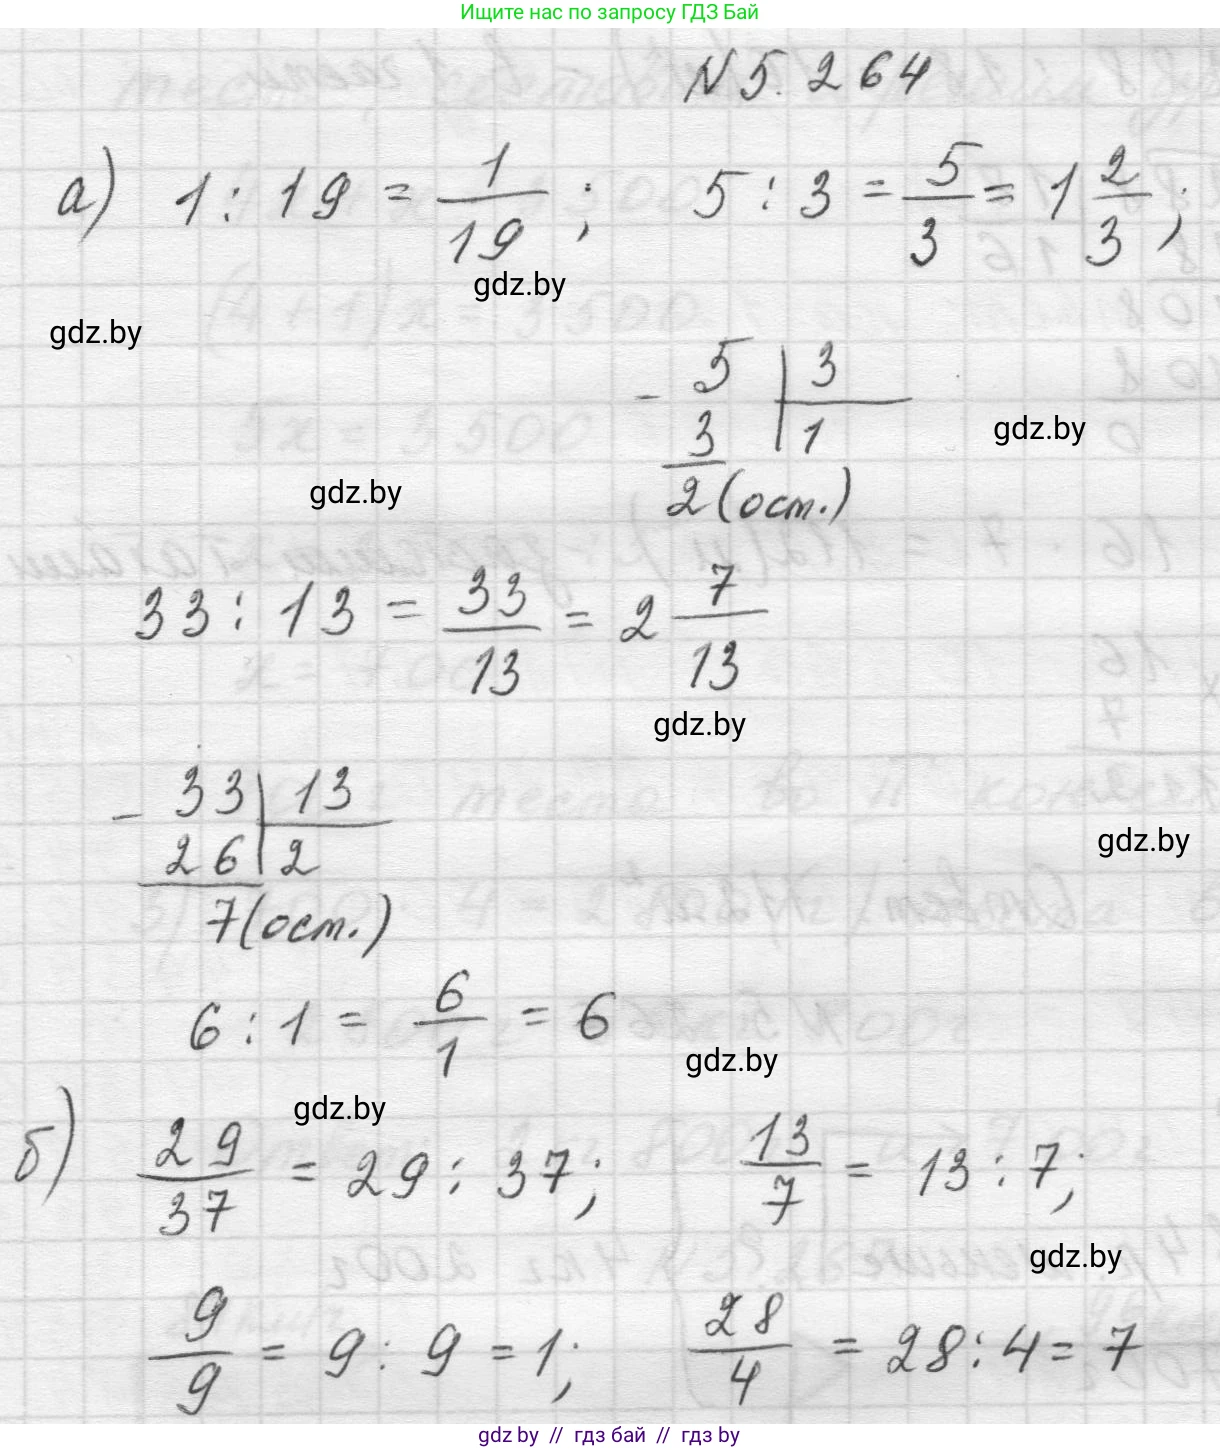 Ищите нас по запросу ГДЗ Бай
N 5. 264
а) 1 : 19 = 1/19 ; 5 : 3 = 5/3 = 1 2/3 ;
gdz.by
gdz.by
- 5 | 3
3 | 1
gdz.by
2 (ост.)
gdz.by
33 : 13 = 33/13 = 2 7/13
gdz.by
- 33 | 13
26 | 2
gdz.by
7 (ост.)
6 : 1 = 6/1 = 6
gdz.by
gdz.by
б) 29/37 = 29 : 37; 13/7 = 13 : 7;
gdz.by
9/9 = 9 : 9 = 1; 28/4 = 28 : 4 = 7
gdz.by // гдз бай // gdz.by